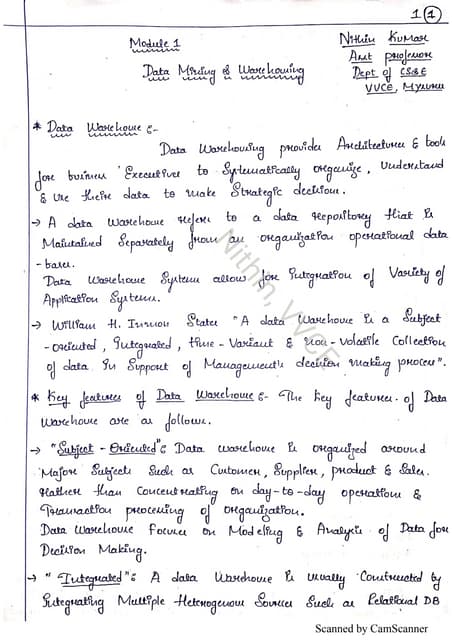 1 (1)
Nithin Kumar
Module 1
Asst professor
Data Mining & Warehousing
Dept of CS&E
VVCE, Mysuru
* Data Warehouse :-
Data Warehousing provides Architectures & tools
for business Executives to Systematically organize, Understand
& use their data to make Strategic decisions.
→ A data Warehouse refers to a data repository that is
Maintained Separately from an organization operational data
-bases.
Data Warehouse Systems allows for Integration of Variety of
Application Systems.
→ William H. Inmon States "A data Warehouse is a Subject
-oriented, Integrated, time-Variant & non-volatile Collection
of data In Support of Management's decision making process".
* Key features of Data Warehouse :- The key features of Data
Warehouse are as follows.
→ "Subject - Oriented": Data warehouse is organized around
Major Subjects Such as Customer, Supplier, product & Sales.
Rather than Concentrating on day-to-day operations &
Transaction processing of organization.
Data Warehouse focuses on Modeling & Analysis of Data for
Decision Making.
→ "Integrated": A data Warehouse is usually Constructed by
Integrating Multiple Heterogenous Sources Such as Relational DB
Nithin, VVCE
Scanned by CamScanner